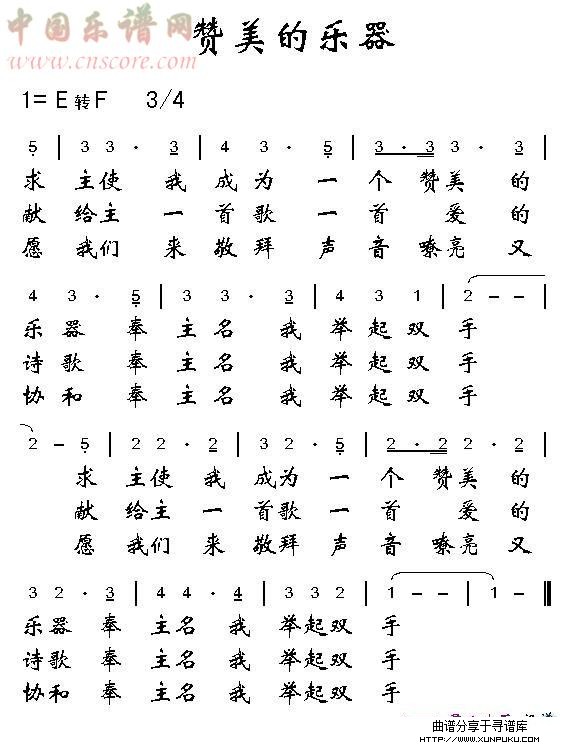 中国乐谱网
www.cnscore.com
赞美的乐器
1= E 转 F 3/4
5 | 3 3 · 3 | 4 3 · 5 | 3 · 3 3 · 3 |
求 主使 我 成为 一 个 赞美 的
献 给主 一 首歌 一 首 爱 的
愿 我们 来 敬拜 声 音 嘹亮 又
4 3 · 5 | 3 3 · 3 | 4 3 1 | 2 - - |
乐器 奉 主名 我 举起双 手
诗歌 奉 主名 我 举起双 手
协和 奉 主名 我 举起双 手
2 - 5 | 2 2 · 2 | 3 2 · 5 | 2 · 2 2 · 2 |
求 主使 我 成为 一 个 赞美 的
献 给主 一 首歌 一 首 爱 的
愿 我们 来 敬拜 声 音 嘹亮 又
3 2 · 3 | 4 4 · 4 | 3 3 2 | 1 - - | 1 - ‖
乐器 奉 主名 我 举起双 手
诗歌 奉 主名 我 举起双 手
协和 奉 主名 我 举起双 手
曲谱分享于寻谱库
HTTP://WWW.XUNPUKU.COM